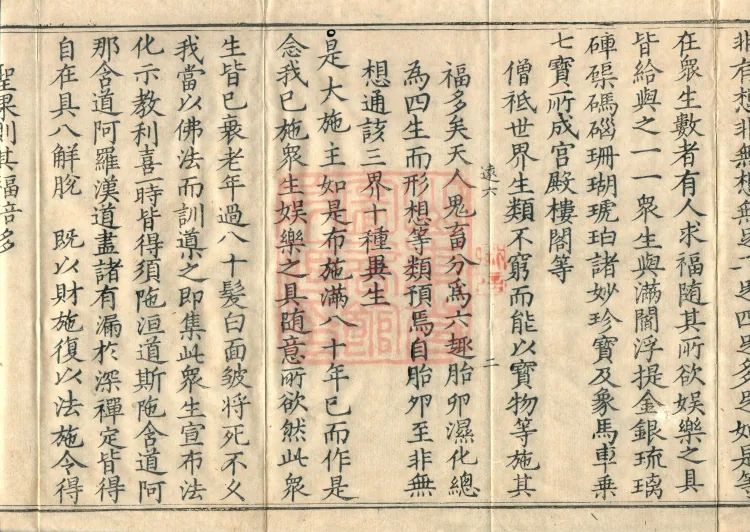 在衆生數者有人求福隨其所欲娛樂之具
皆給與之一一衆生與滿閻浮提金銀琉璃
硨磲碼碯珊瑚琥珀諸妙珍寶及象馬車乗
七寶所成宫殿樓閣等
僧祇世界生類不窮而能以寶物等施其
遠六
二
福多矣天人鬼畜分爲六趣胎卵濕化緫
為四生而形想等類預焉自胎卵至非無
想通該三界十種異生
是大施主如是布施滿八十年已而作是
念我已施衆生娛樂之具隨意所欲然此衆
生皆已衰老年過八十髮白面皺將死不乆
我當以佛法而訓導之即集此衆生宣布法
化示教利喜一時皆得須陁洹道斯陁含道阿
那含道阿羅漢道盡諸有漏於深禪定皆得
自在具八解脫 既以財施復以法施令得
聖果則其福倍多